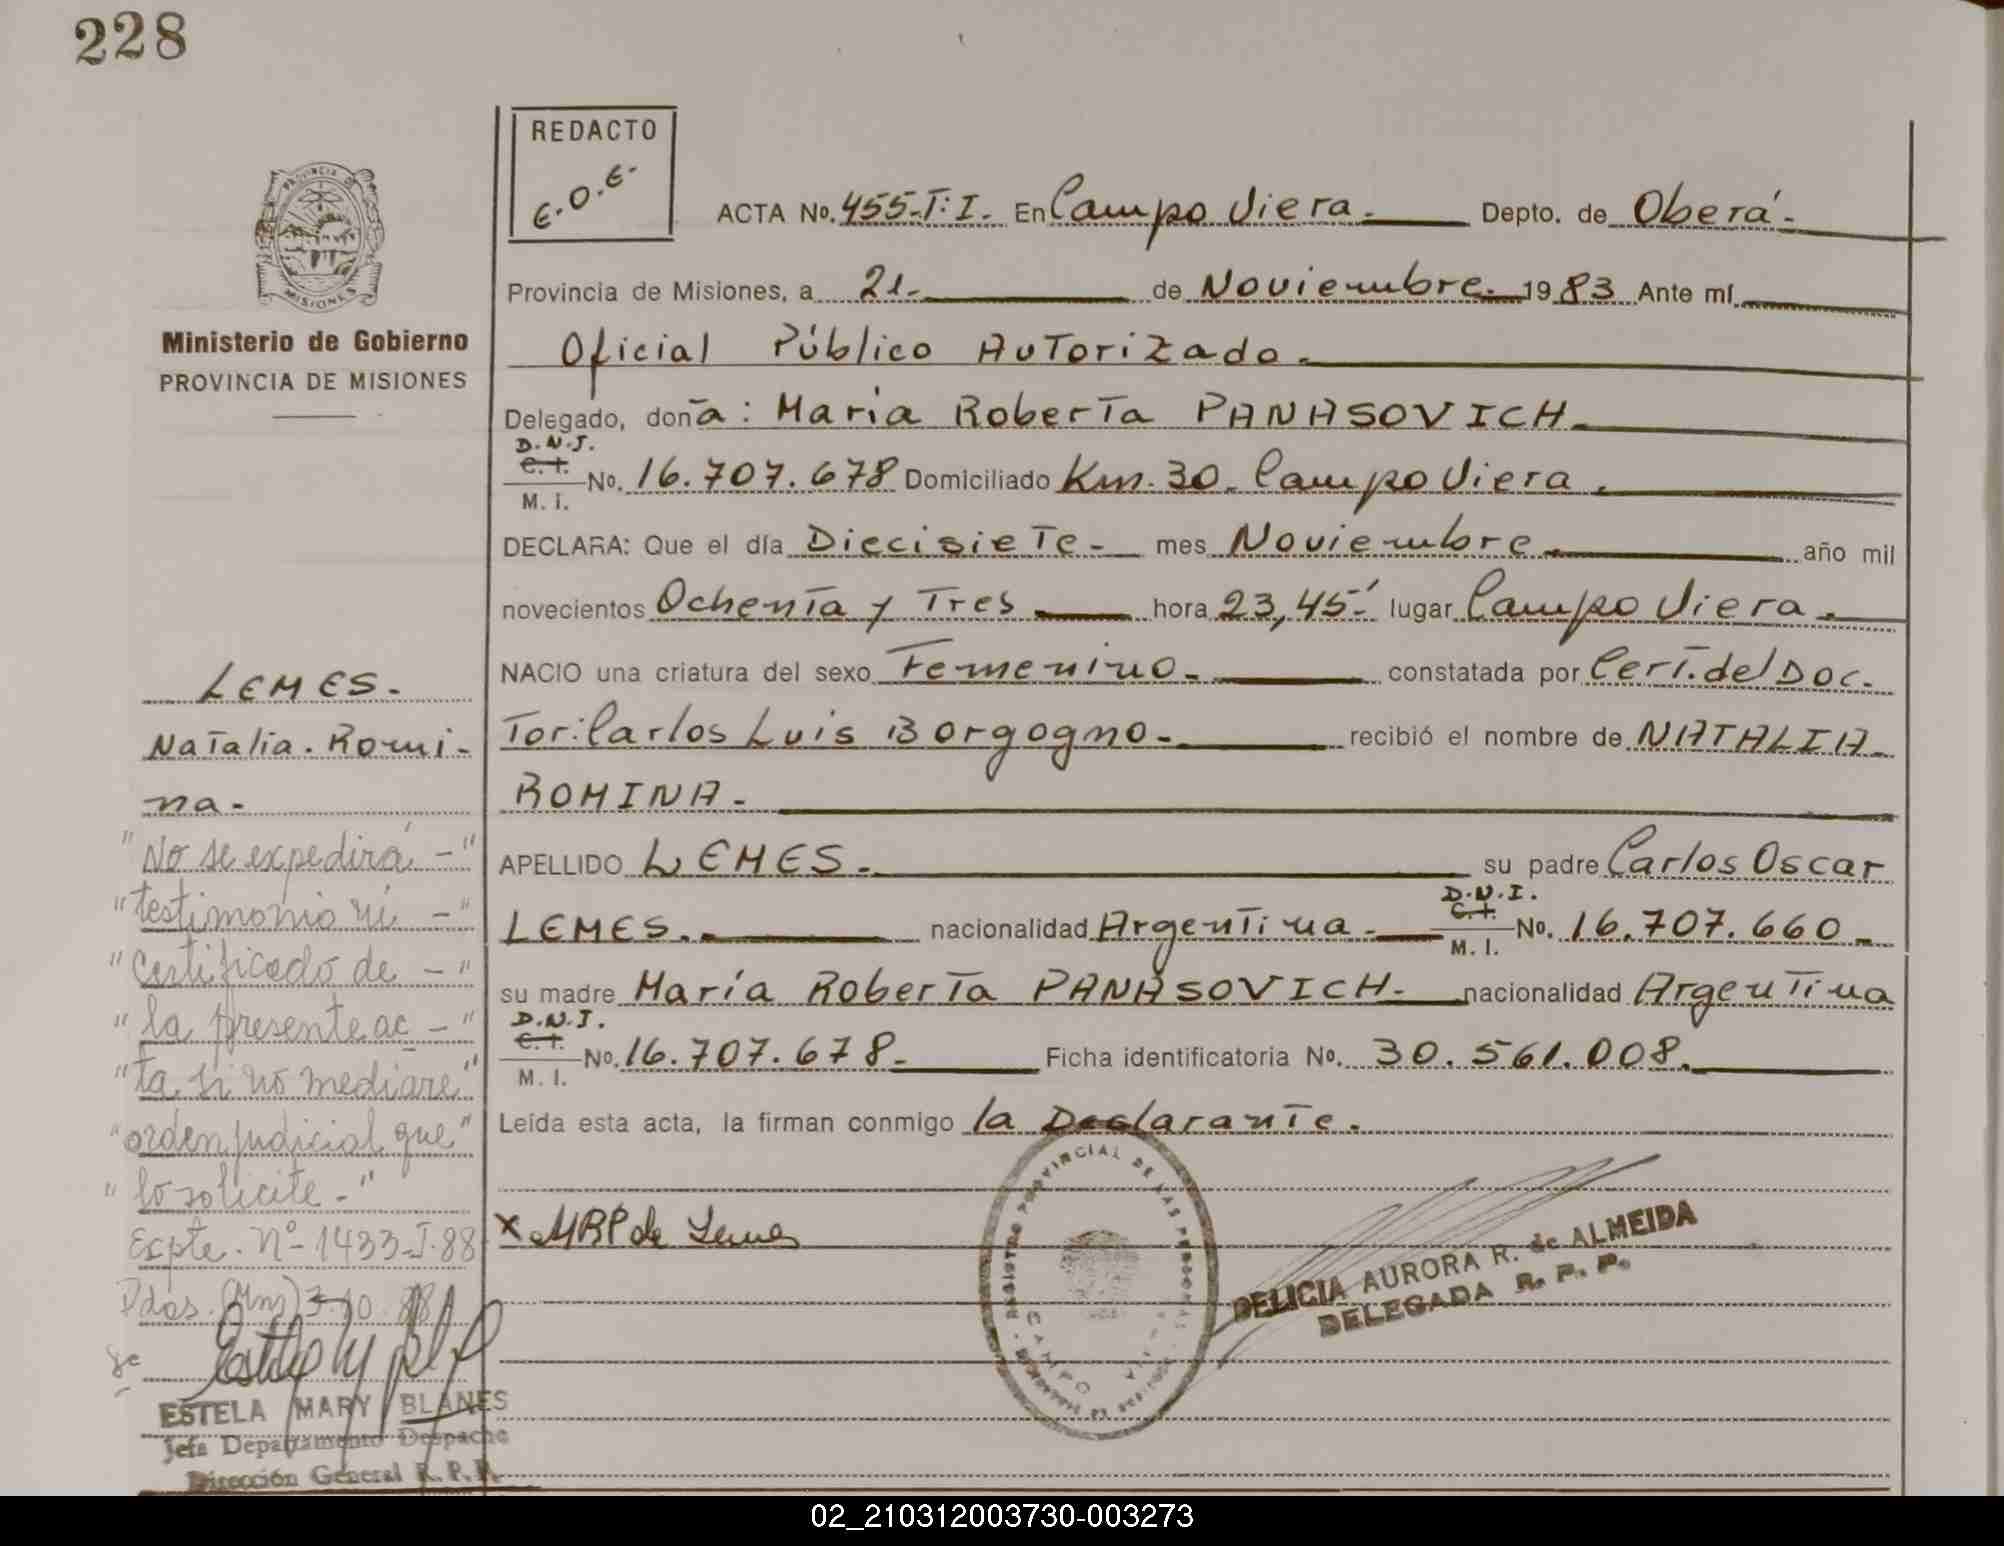 228
REDACTO
E.O.E.
PROVINCIA DE
MISIONES
Ministerio de Gobierno
PROVINCIA DE MISIONES
ACTA No. 455-T:I. En Campo Viera. Depto. de Oberá.-
Provincia de Misiones, a 21.- de Noviembre.- 1983 Ante mí
Oficial Público Autorizado.
Delegado, doña: Maria Roberta PANASOVICH.
D.N.I.
C.I.
M. I.
No. 16.707.678 Domiciliado Km. 30. Campo Viera.
DECLARA: Que el día Diecisiete- mes Noviembre. año mil
novecientos Ochenta y Tres hora 23,45.´ lugar Campo Viera.
NACIO una criatura del sexo Femenino. constatada por Cert. del Doc-
tor: Carlos Luis Borgogno. recibió el nombre de NATALIA
ROMINA.-
APELLIDO LEMES. su padre Carlos Oscar
D.N.I.
C.I.
M. I.
LEMES. nacionalidad Argentina No. 16.707.660
su madre María Roberta PANASOVICH. nacionalidad Argentina
D.N.I.
C.I.
M. I.
No. 16.707.678. Ficha identificatoria No. 30.561.008.
Leída esta acta, la firman conmigo la Declarante.
LEMES.
Natalia. Romi-
na-
"No se expedirá -"
"testimonio ni -"
"Certificado de -"
"la presente ac -"
"ta si no mediare"
"orden judicial que"
"lo solicite -"
Expte. Nº 1433-I-88
Pdas. (Mns) 3-10-88
x MRP de Lemes
REGISTRO PROVINCIAL DE LAS PERSONAS
CAMPO VIERA
DELICIA AURORA R. de ALMEIDA
DELEGADA R. P. P.
ESTELA MARY BLANES
Jefa Departamento Despacho
Dirección General R. P. P.
02_210312003730-003273